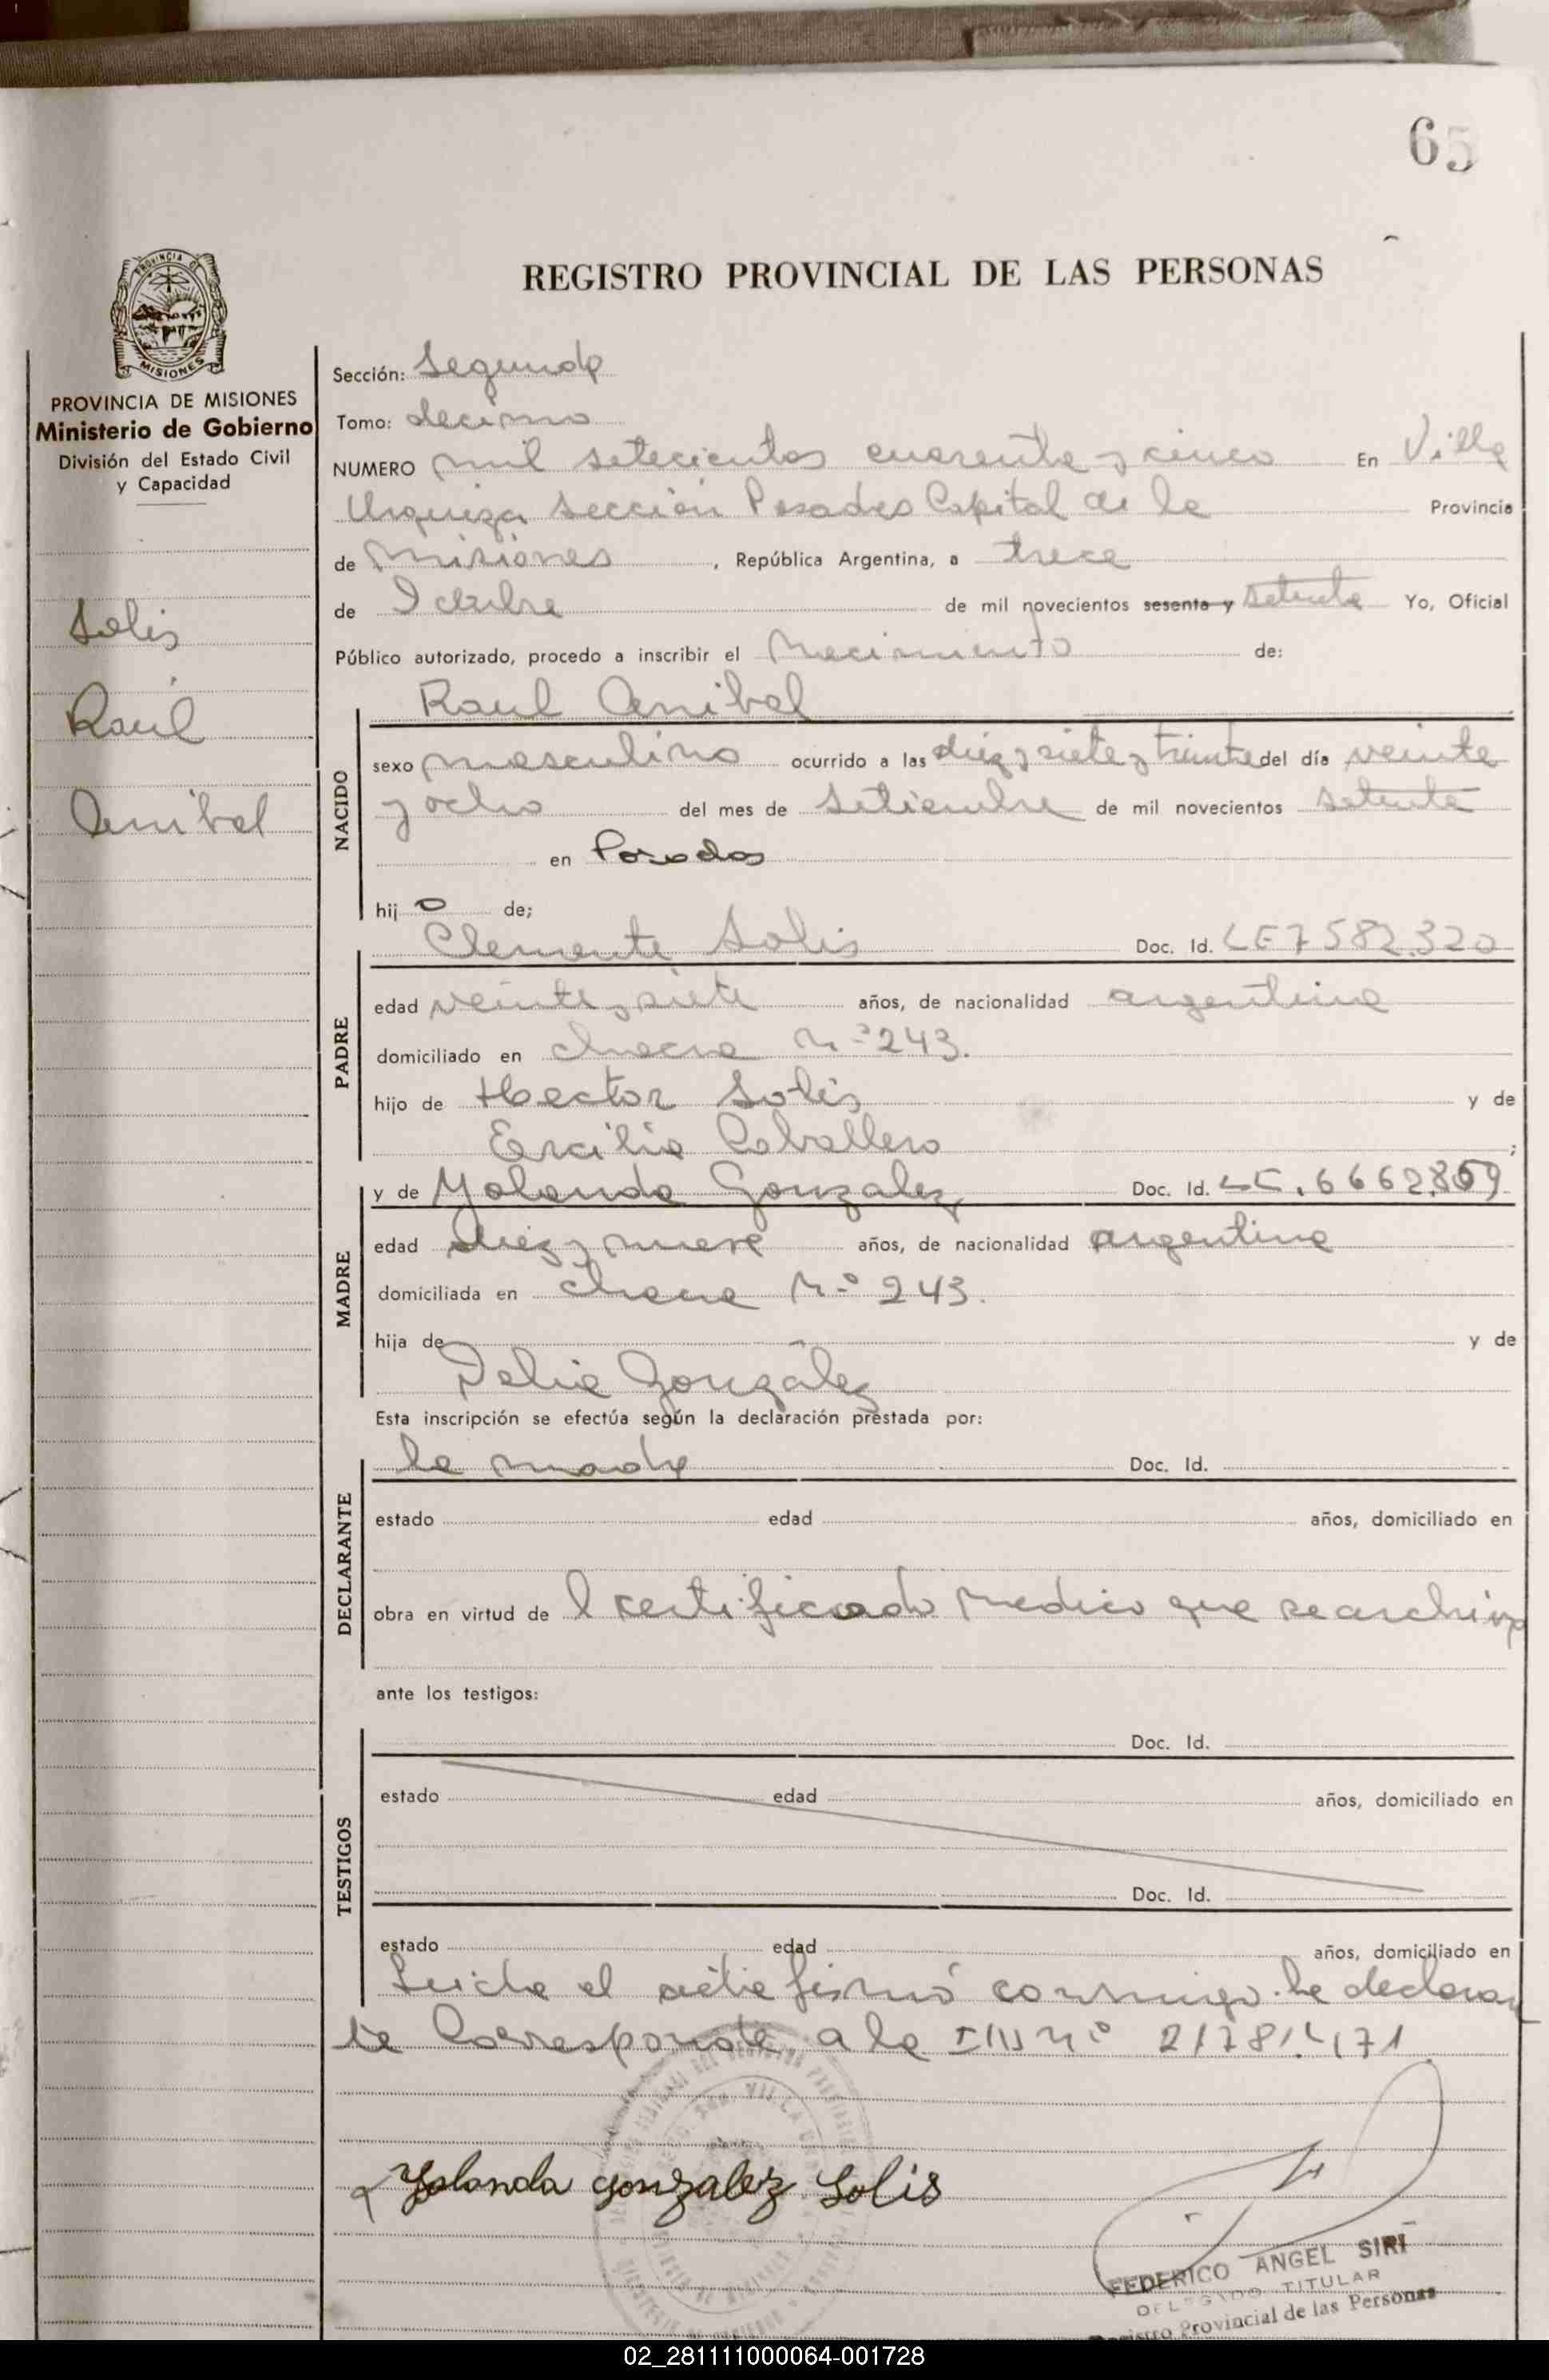 65
REGISTRO PROVINCIAL DE LAS PERSONAS
PROVINCIA DE
MISIONES
PROVINCIA DE MISIONES
Ministerio de Gobierno
División del Estado Civil
y Capacidad
Solis
Raúl
Anibal
Sección: Segunda
Tomo: decimo
NUMERO mil setecientos cuarenta y cinco En Villa
Urquiza sección Posadas Capital de la Provincia
de Misiones, República Argentina, a trece
de Octubre de mil novecientos sesenta y setenta Yo, Oficial
Público autorizado, procedo a inscribir el Nacimiento de:
Raul Anibal
NACIDO
sexo masculino ocurrido a las diez y siete y treinta del día veinte
y ocho del mes de Setiembre de mil novecientos setenta
en Posadas
hijo de;
Clemente Solis Doc. Id. LE 7582.320
PADRE
edad veinte y siete años, de nacionalidad argentina
domiciliado en chacra Nº 243.
hijo de Hector Solis y de
Ercilia Caballero;
y de Yolanda Gonzalez Doc. Id. LC. 6662.869
MADRE
edad diez y nueve años, de nacionalidad argentina
domiciliada en chacra Nº 243.
hija de y de
Delia González
Esta inscripción se efectúa según la declaración prestada por:
la madre Doc. Id.
DECLARANTE
estado edad años, domiciliado en
obra en virtud de l certificado medico que se archiva
ante los testigos:
Doc. Id.
TESTIGOS
estado edad años, domiciliado en
Doc. Id.
estado edad años, domiciliado en
Leida el acta firmó conmigo la declaran
te Corresponde a la nº 21781.471
Yolanda gonzalez Solis
FEDERICO ANGEL SIRI
DELEGADO TITULAR
Registro Provincial de las Personas
02_281111000064-001728